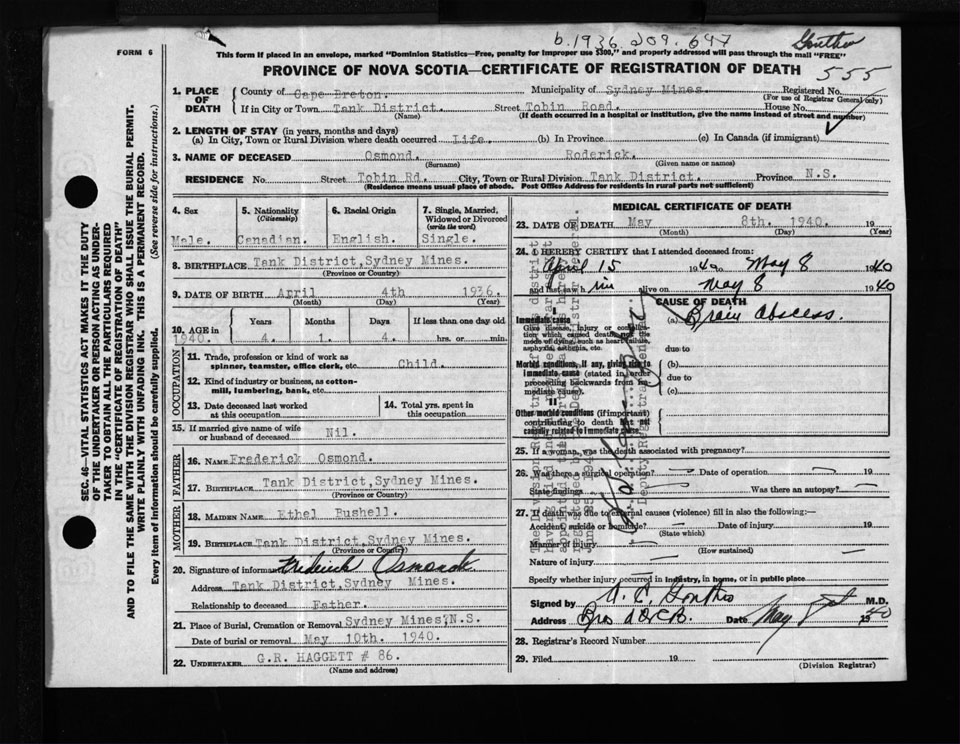 b.1936 209.647
FORM 6
This form if placed in an envelope, marked "Dominion Statistics—Free, penalty for improper use $300," and properly addressed will pass through the mail "FREE"
PROVINCE OF NOVA SCOTIA—CERTIFICATE OF REGISTRATION OF DEATH 555
SEC. 46—VITAL STATISTICS ACT MAKES IT THE DUTY
OF THE UNDERTAKER OR PERSON ACTING AS UNDER-
TAKER TO OBTAIN ALL THE PARTICULARS REQUIRED
IN THE "CERTIFICATE OF REGISTRATION OF DEATH"
AND TO FILE THE SAME WITH THE DIVISION REGISTRAR WHO SHALL ISSUE THE BURIAL PERMIT.
WRITE PLAINLY WITH UNFADING INK. THIS IS A PERMANENT RECORD.
Every item of information should be carefully supplied. (See reverse side for instructions.)
1. PLACE OF DEATH
County of Cape Breton. Municipality of Sydney Mines. Registered No.
(For use of Registrar General only)
If in City or Town Tank District. Street Tobin Road. House No.
(Name) (If death occurred in a hospital or institution, give the name instead of street and number)
2. LENGTH OF STAY (in years, months and days)
(a) In City, Town or Rural Division where death occurred Life. (b) In Province (c) In Canada (if immigrant)
3. NAME OF DECEASED Osmond. Roderick.
(Surname) (Given name or names)
RESIDENCE No. Street Tobin Rd. City, Town or Rural Division Tank District. Province N.S.
(Residence means usual place of abode. Post Office Address for residents in rural parts not sufficient)
4. Sex 5. Nationality (Citizenship) 6. Racial Origin 7. Single, Married, Widowed or Divorced (write the word)
Male. Canadian. English. Single.
8. BIRTHPLACE Tank District,Sydney Mines.
(Province or Country)
9. DATE OF BIRTH April 4th 1936.
(Month) (Day) (Year)
10. AGE in Years Months Days If less than one day old
1940. 4. 1. 4. hrs. or min.
OCCUPATION
11. Trade, profession or kind of work as spinner, teamster, office clerk, etc. Child.
12. Kind of industry or business, as cotton-mill, lumbering, bank, etc.
13. Date deceased last worked at this occupation
14. Total yrs. spent in this occupation
15. If married give name of wife or husband of deceased Nil.
FATHER
16. NAME Frederick Osmond.
17. BIRTHPLACE Tank District,Sydney Mines.
(Province or Country)
MOTHER
18. MAIDEN NAME Ethel Pushell.
19. BIRTHPLACE Tank District,Sydney Mines.
(Province or Country)
20. Signature of informant Frederick Osmond
Address Tank District,Sydney Mines.
Relationship to deceased Father.
21. Place of Burial, Cremation or Removal Sydney Mines,N.S.
Date of burial or removal May 10th. 1940.
22. UNDERTAKER G.R. HAGGETT # 86.
(Name and address)
MEDICAL CERTIFICATE OF DEATH
23. DATE OF DEATH May 8th. 1940. 19
(Month) (Day) (Year)
24. I HEREBY CERTIFY that I attended deceased from:
April 15 1940 to May 8 1940
and last saw him alive on May 8 1940
CAUSE OF DEATH
I
Immediate cause (a) Brain abscess.
Give disease, injury or complication which caused death, not mode of dying, such as heart failure, asphyxia, asthenia, etc.
due to
Morbid conditions, if any, giving rise to immediate cause (stated in order proceeding backwards from immediate cause).
(b)
due to
(c)
II
Other morbid conditions (if important) contributing to death but not causally related to immediate cause.
25. If a woman, was the death associated with pregnancy?
26. Was there a surgical operation? — Date of operation — 19
State findings Was there an autopsy? —
27. If death was due to external causes (violence) fill in also the following:—
Accident, suicide or homicide? — Date of injury 19
(State which)
Manner of injury —
(How sustained)
Nature of injury —
Specify whether injury occurred in industry, in home, or in public place
Signed by M.D.
Address Date May 8 1940
28. Registrar's Record Number
29. Filed 19
(Division Registrar)